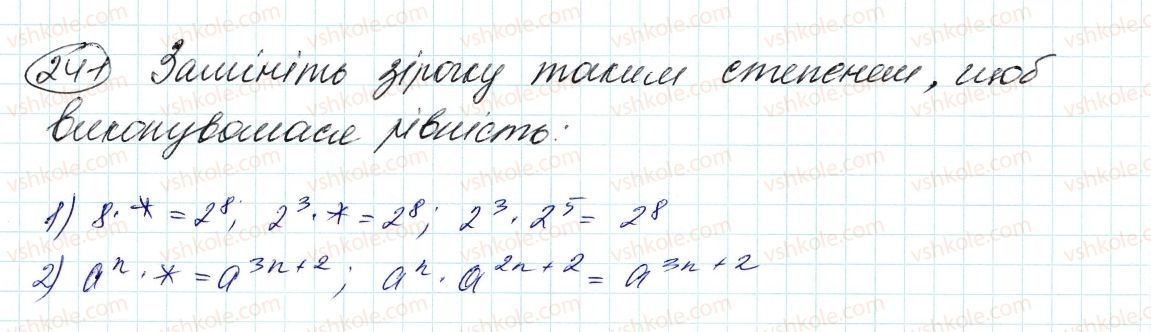 241 Замініть зірочку таким степенем, щоб
виконувалася рівність:
1) 8 · * = 2⁸; 2³ · * = 2⁸; 2³ · 2⁵ = 2⁸
2) aⁿ · * = a³ⁿ⁺²; aⁿ · a²ⁿ⁺² = a³ⁿ⁺²